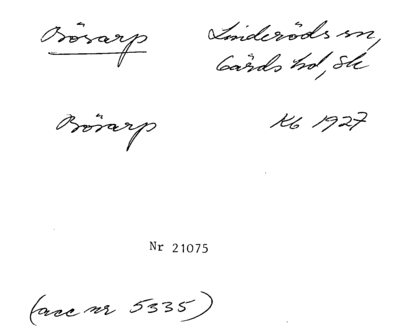 Bösarp Linderöds sn,
Gärds hd, Sk
Bösarp Kb 1927
Nr 21075
(acc nr 5335)